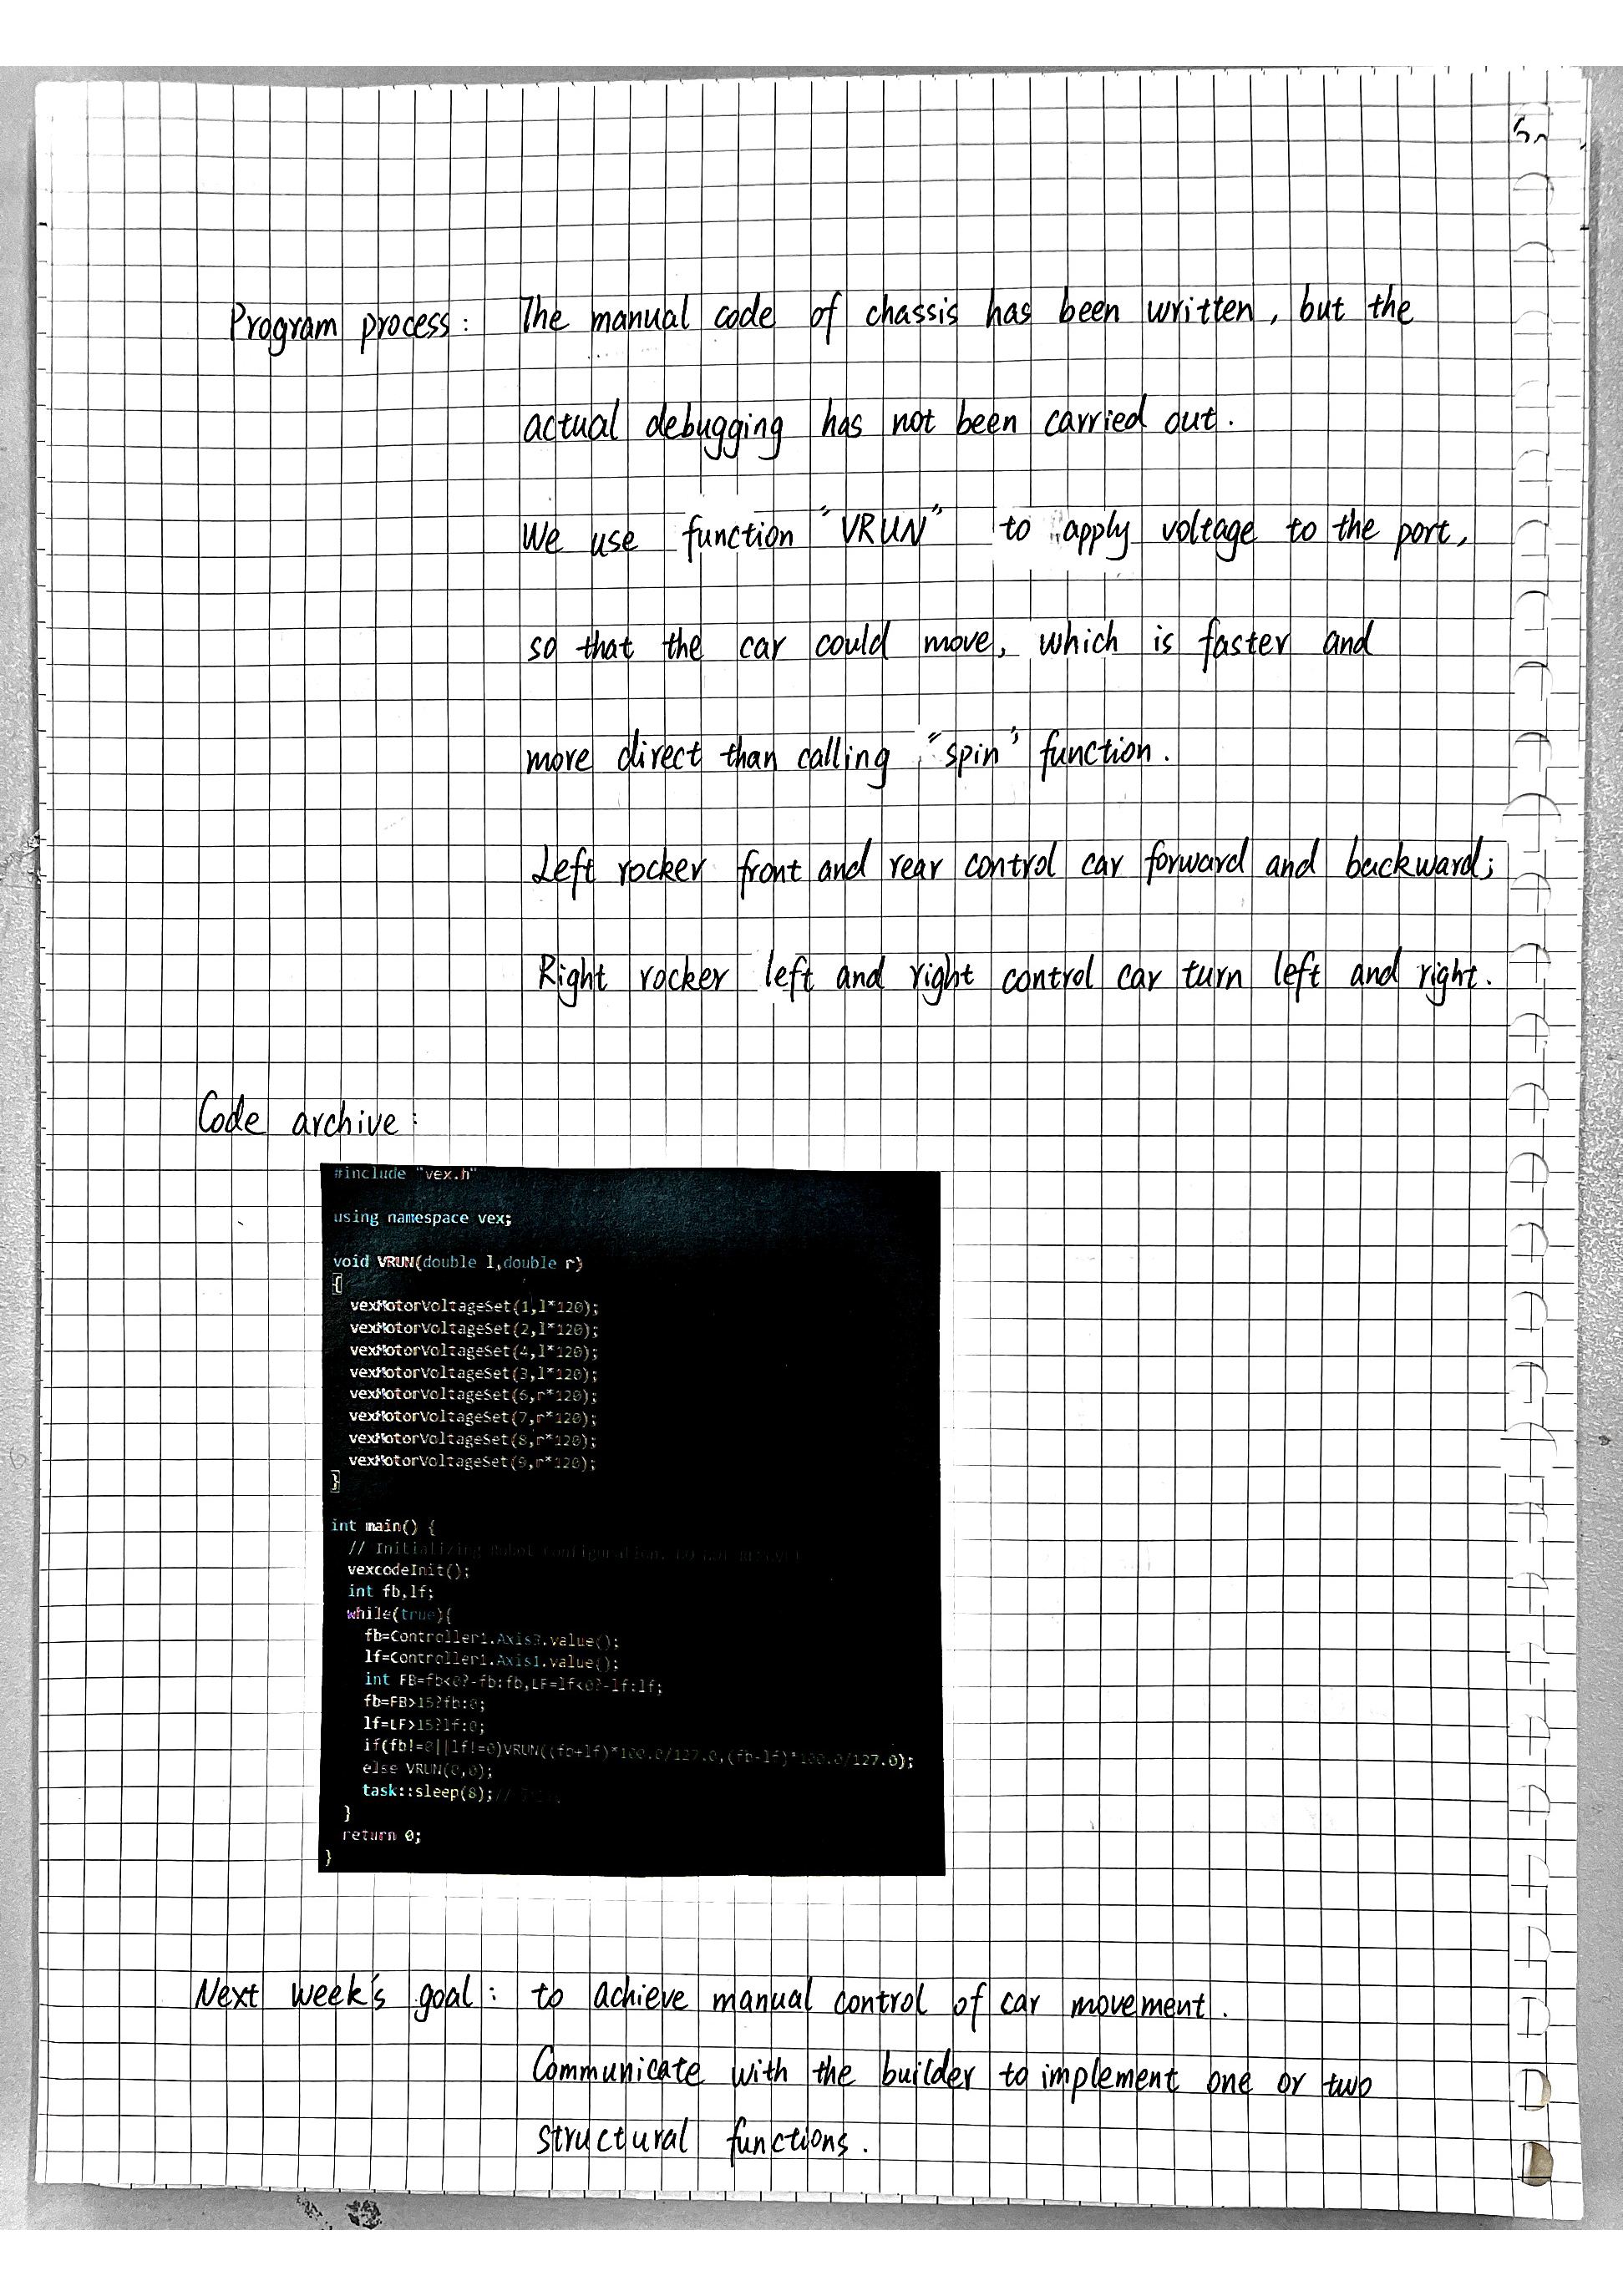 Program process: The manual code of chassis has been written, but the
actual debugging has not been carried out.
We use function "VRUN" to apply voltage to the port,
so that the car could move, which is faster and
more direct than calling "spin" function.
Left rocker front and rear control car forward and backward;
Right rocker left and right control car turn left and right.
Code archive:
#include "vex.h"
using namespace vex;
void VRUN(double l,double r)
{
vexMotorVoltageSet(1,l*120);
vexMotorVoltageSet(2,l*120);
vexMotorVoltageSet(4,l*120);
vexMotorVoltageSet(3,l*120);
vexMotorVoltageSet(6,r*120);
vexMotorVoltageSet(7,r*120);
vexMotorVoltageSet(8,r*120);
vexMotorVoltageSet(9,r*120);
}
int main() {
// Initializing Robot Configuration. DO NOT REMOVE!
vexcodeInit();
int fb,lf;
while(true){
fb=Controller1.Axis3.value();
lf=Controller1.Axis1.value();
int FB=fb<0?-fb:fb,LF=lf<0?-lf:lf;
fb=FB>15?fb:0;
lf=LF>15?lf:0;
if(fb!=0||lf!=0)VRUN((fb+lf)*100.0/127.0,(fb-lf)*100.0/127.0);
else VRUN(0,0);
task::sleep(8);//
}
return 0;
}
Next week's goal: to achieve manual control of car movement.
Communicate with the builder to implement one or two
structural functions.